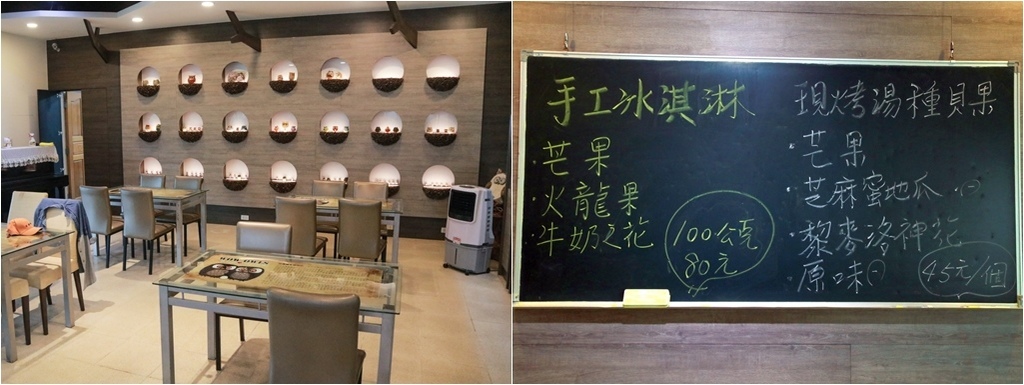 手工冰淇淋
·芒果
·火龍果
牛奶之花
100公克
80元
現烤湯種貝果
·芒果
·芝麻蜜地瓜
·黎麥洛神花
原味
45元/個